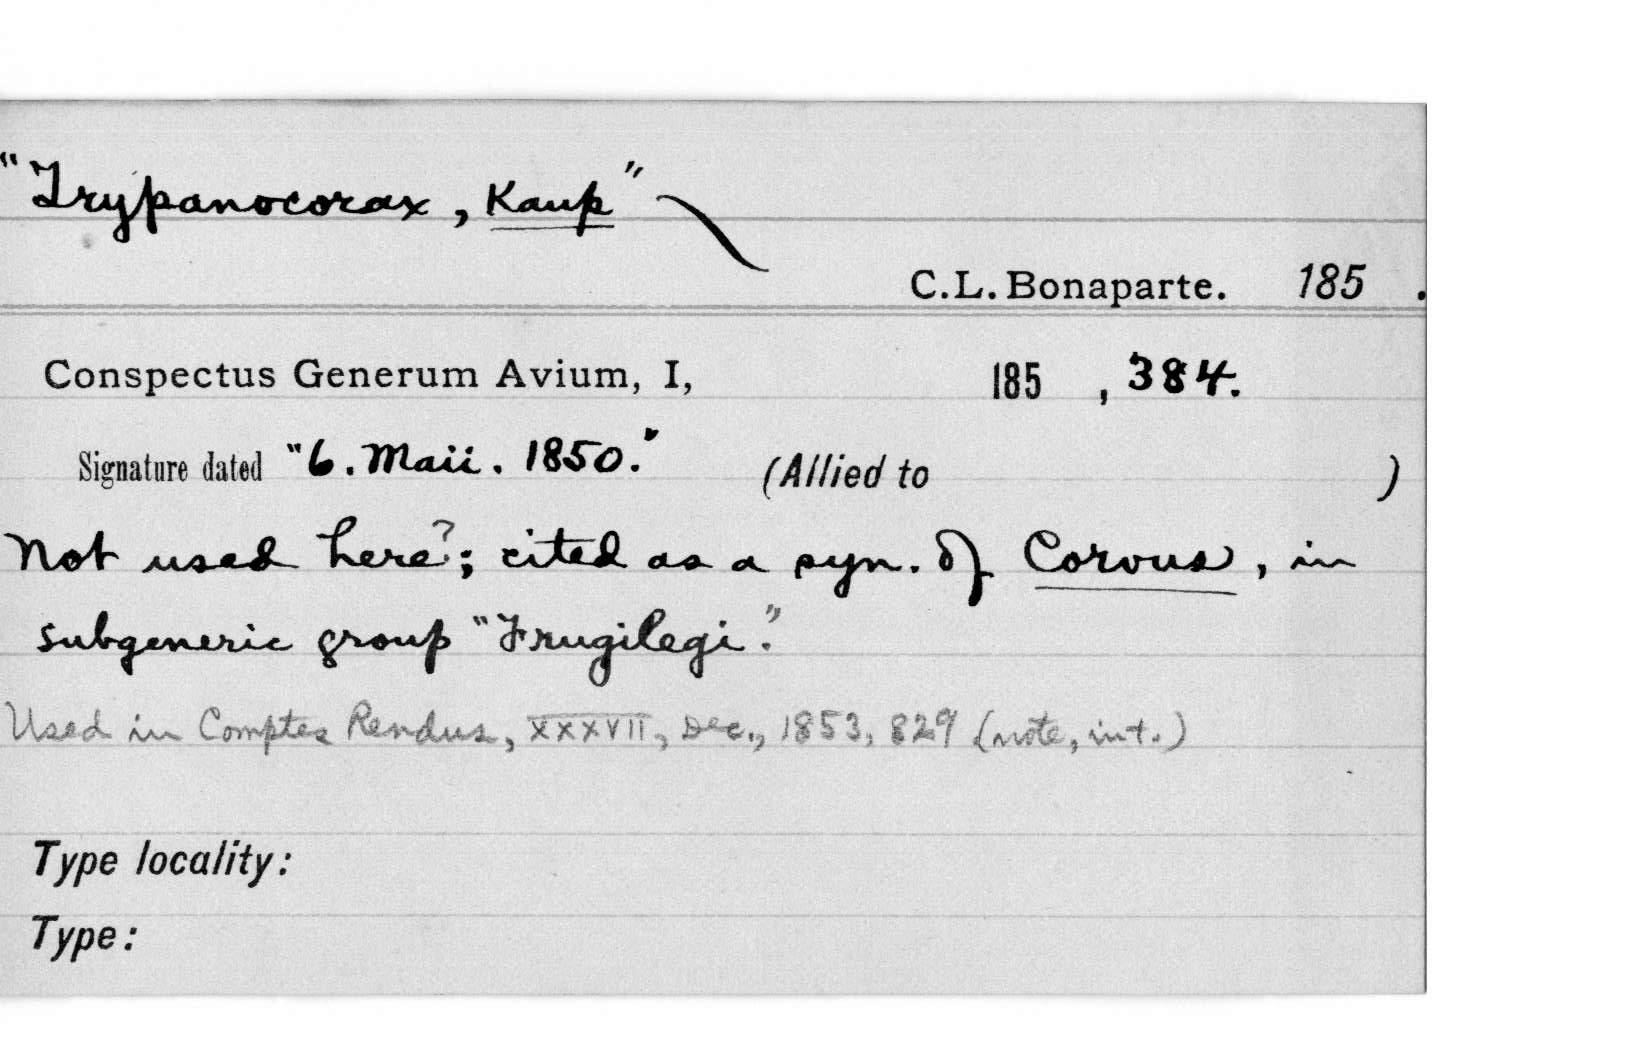 "Trypanocorax, Kaup"
C.L. Bonaparte. 185 .
Conspectus Generum Avium, I, 185 , 384.
Signature dated "6. Maii. 1850." (Allied to )
Not used here?; cited as a syn. of Corvus, in
subgeneric group "Frugilegi."
Used in Comptes Rendus, XXXVII, Dec., 1853, 829 (note, int.)
Type locality:
Type: